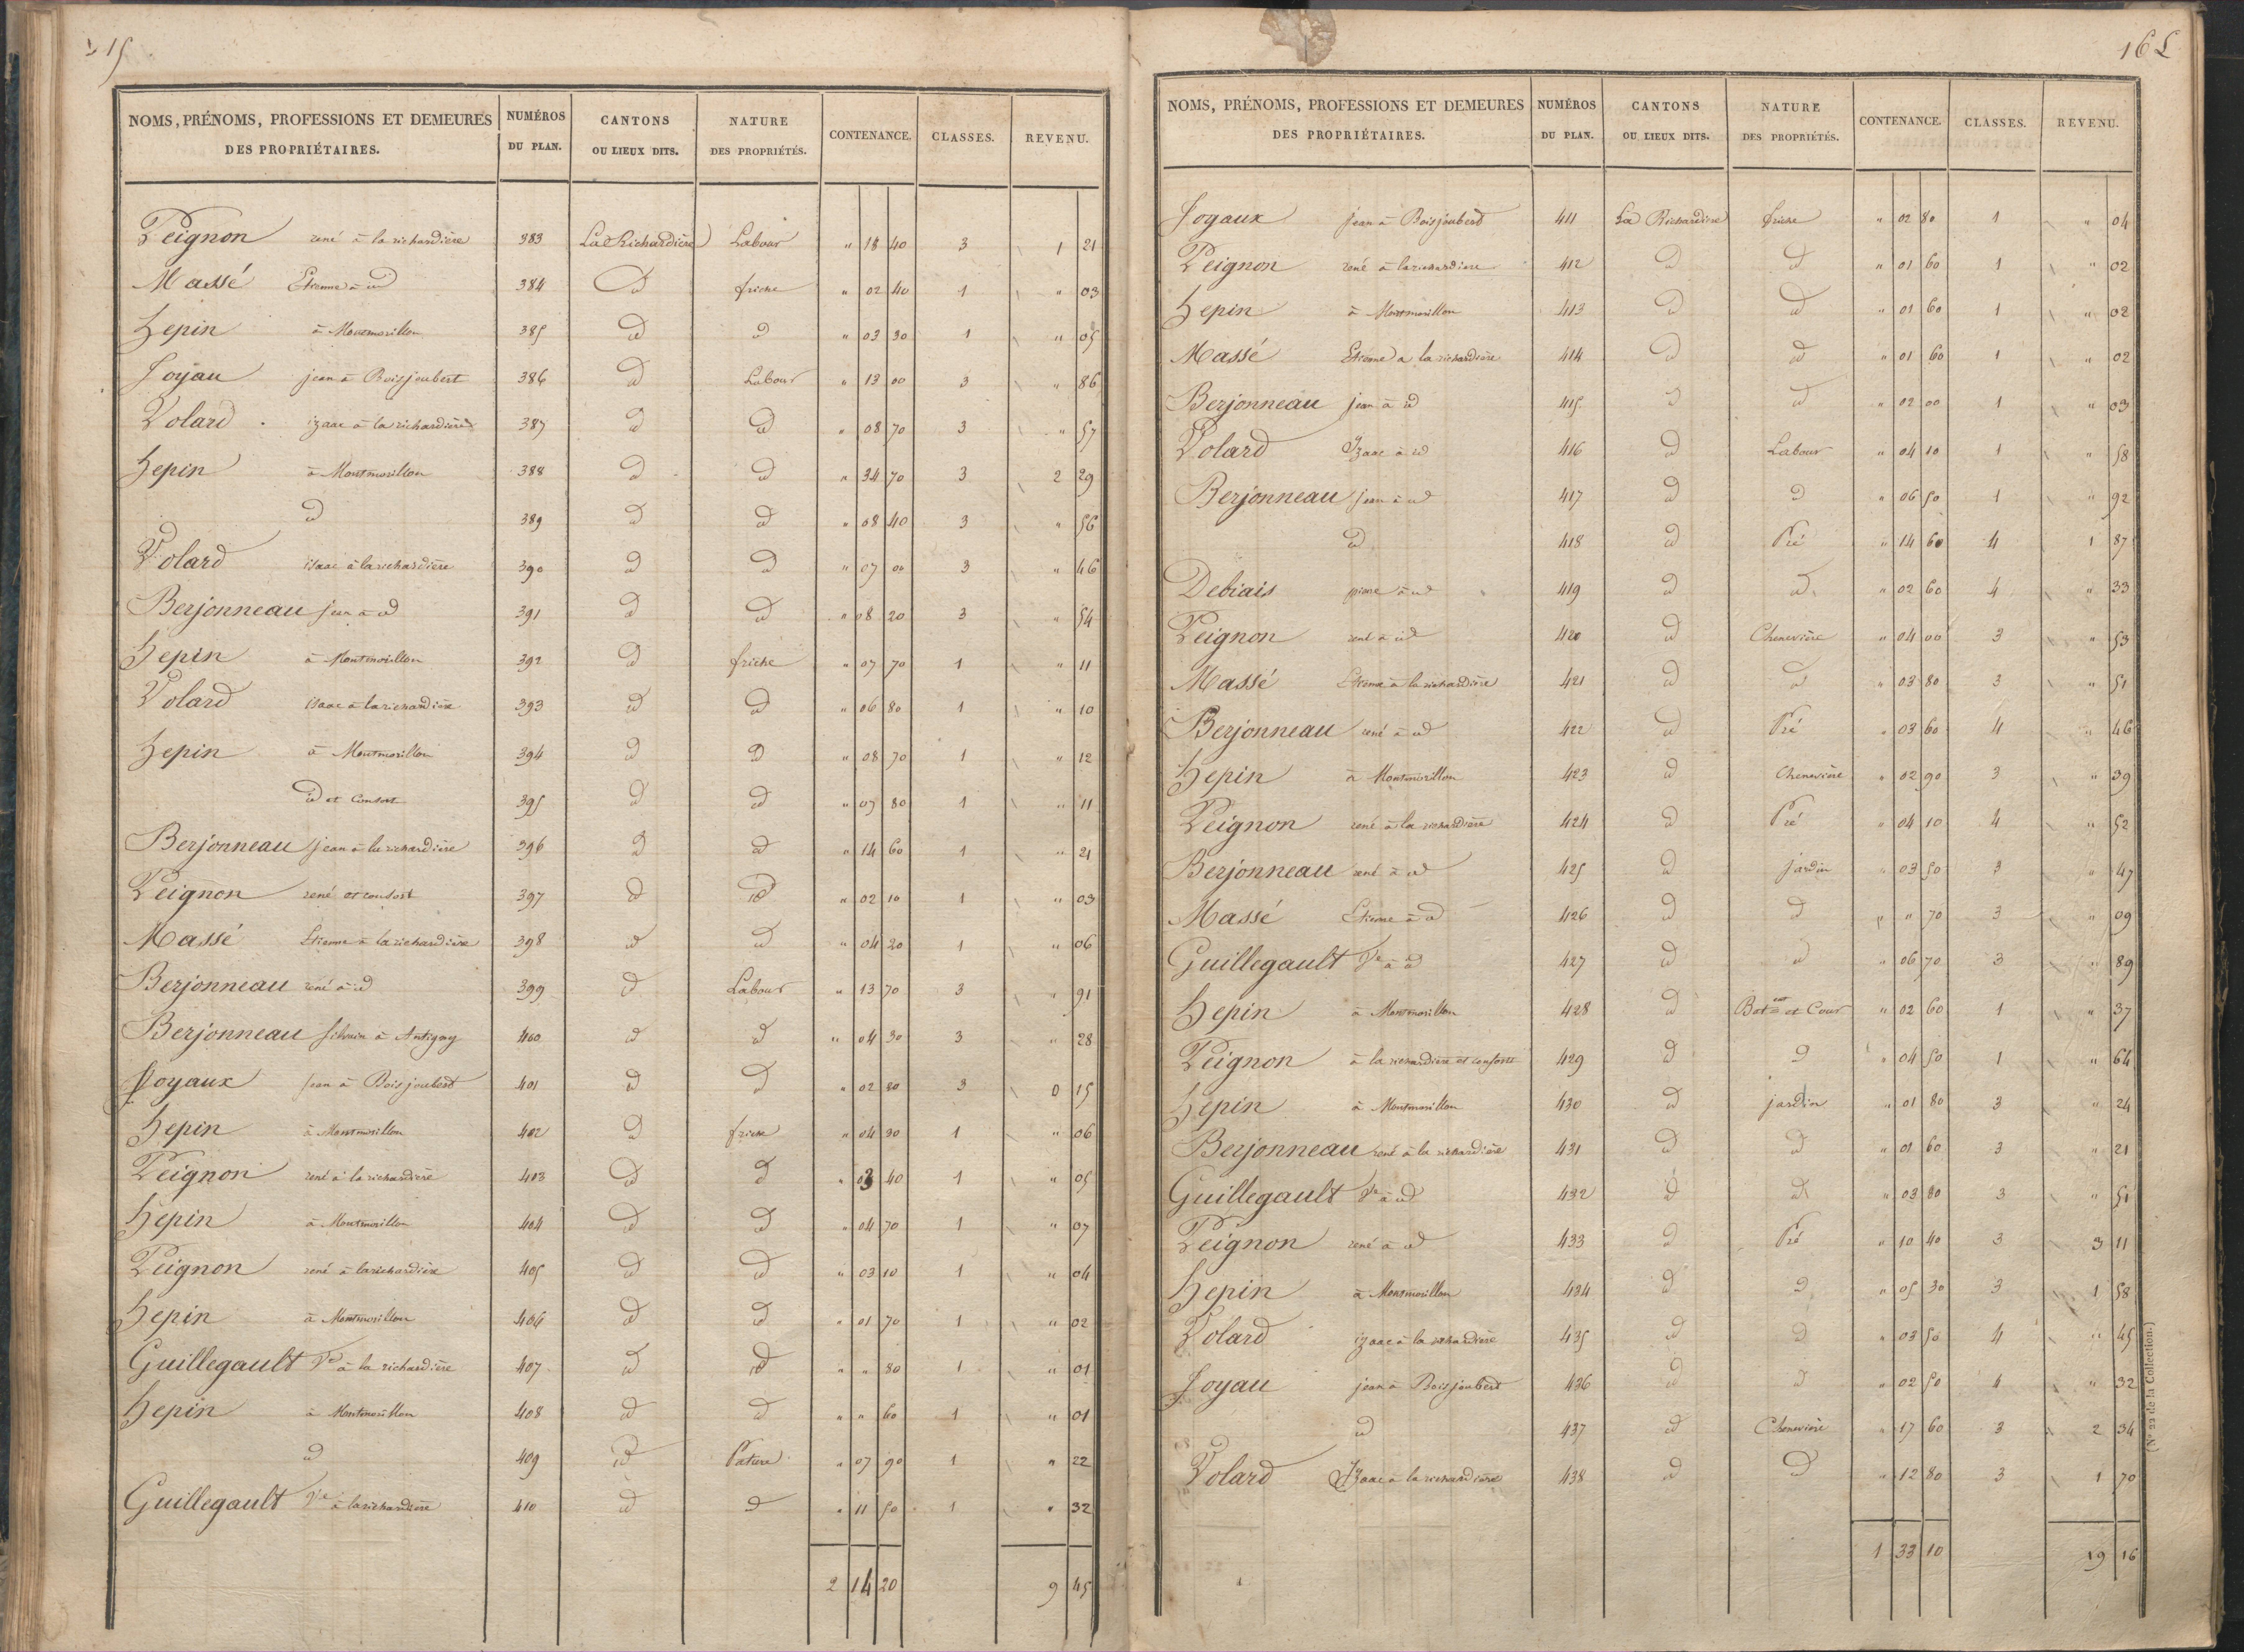 15
NOMS, PRÉNOMS, PROFESSIONS ET DEMEURES DES PROPRIÉTAIRES. NUMÉROS DU PLAN. CANTONS OU LIEUX DITS. NATURE DES PROPRIÉTÉS. CONTENANCE. CLASSES. REVENU.
Peignon rené à la richardière 383 La Richardière Labour " 18 40 3 1 21
Massé Etienne à id 384 id friche " 02 40 1 " 03
hepin à Montmorillon 385 id id " 03 30 1 " 05
Joyau jean à Boisjoubert 386 id Labour " 13 00 3 " 86
Volard izaac à la richardière 387 id id " 08 70 3 " 57
hepin à Montmorillon 388 id id " 34 70 3 2 29
id 389 id id " 08 40 3 " 56
Volard isaac à la richardière 390 id id " 07 00 3 " 46
Berjonneau jean à id 391 id id " 08 20 3 " 54
hepin à Montmorillon 392 id friche " 07 70 1 " 11
Volard isaac à la richardière 393 id id " 06 80 1 " 10
hepin à Montmorillon 394 id id " 08 70 1 " 12
id et Consort 395 id id " 07 80 1 " 11
Berjonneau jean à la richardière 396 id id " 14 60 1 " 21
Peignon rené et consort 397 id id " 02 10 1 " 03
Massé Etienne à la richardière 398 id id " 04 20 1 " 06
Berjonneau rené à id 399 id Labour " 13 70 3 " 91
Berjonneau silvain à Antigny 400 id id " 04 30 3 " 28
Joyaux jean à Boisjoubert 401 id id " 02 80 3 0 15
hepin à Montmorillon 402 id friche " 04 30 1 " 06
Peignon rené à la richardière 403 id id " 03 40 1 " 05
hepin à Montmorillon 404 id id " 04 70 1 " 07
Peignon rené à la richardière 405 id id " 03 10 1 " 04
hepin à Montmorillon 406 id id " 01 70 1 " 02
Guillegault Ve à la richardière 407 id id " " 80 1 " 01
hepin à Montmorillon 408 id id " " 60 1 " 01
id 409 id Pature " 07 90 1 " 22
Guillegault Ve à la richardière 410 id id " 11 50 1 " 32
2 14 20 9 45
16
NOMS, PRÉNOMS, PROFESSIONS ET DEMEURES DES PROPRIÉTAIRES. NUMÉROS DU PLAN. CANTONS OU LIEUX DITS. NATURE DES PROPRIÉTÉS. CONTENANCE. CLASSES. REVENU.
Joyaux jean à Boisjoubert 411 La Richardière friche " 02 80 1 " 04
Peignon rené à la richardière 412 id id " 01 60 1 " 02
hepin à Montmorillon 413 id id " 01 60 1 " 02
Massé Etienne à la richardière 414 id id " 01 60 1 " 02
Berjonneau jean à id 415 id id " 02 00 1 " 03
Volard Izaac à id 416 id Labour " 04 10 1 " 58
Berjonneau jean à id 417 id id " 06 50 1 " 92
id 418 id Pré " 14 60 4 1 87
Debiais pierre à id 419 id id " 02 60 4 " 33
Peignon rené à id 420 id Chenevière " 04 00 3 " 53
Massé Etienne à la richardière 421 id id " 03 80 3 " 51
Berjonneau rené à id 422 id Pré " 03 60 4 " 46
hepin à Montmorillon 423 id Chenevière " 02 90 3 " 39
Peignon rené à la richardière 424 id Pré " 04 10 4 " 52
Berjonneau rené à id 425 id jardin " 03 50 3 " 47
Massé Etienne à id 426 id id " " 70 3 " 09
Guillegault Ve à id 427 id id " 06 70 3 " 89
hepin à Montmorillon 428 id Bat et Cour " 02 60 1 " 37
Peignon à la richardière et consorts 429 id id " 04 50 1 " 64
hepin à Montmorillon 430 id jardin " 01 80 3 " 24
Berjonneau rené à la richardière 431 id id " 01 60 3 " 21
Guillegault Ve à id 432 id id " 03 80 3 " 51
Peignon rené à id 433 id Pré " 10 40 3 3 11
hepin à Montmorillon 434 id id " 05 30 3 1 58
Volard izaac à la richardière 435 id id " 03 50 4 " 45
Joyau jean à Boisjoubert 436 id id " 02 50 4 " 32
id 437 id Chenevière " 17 60 3 2 34
Volard Izaac à la richardière 438 id id " 12 80 3 1 70
1 33 10 19 16
(N° 22 de la Collection.)